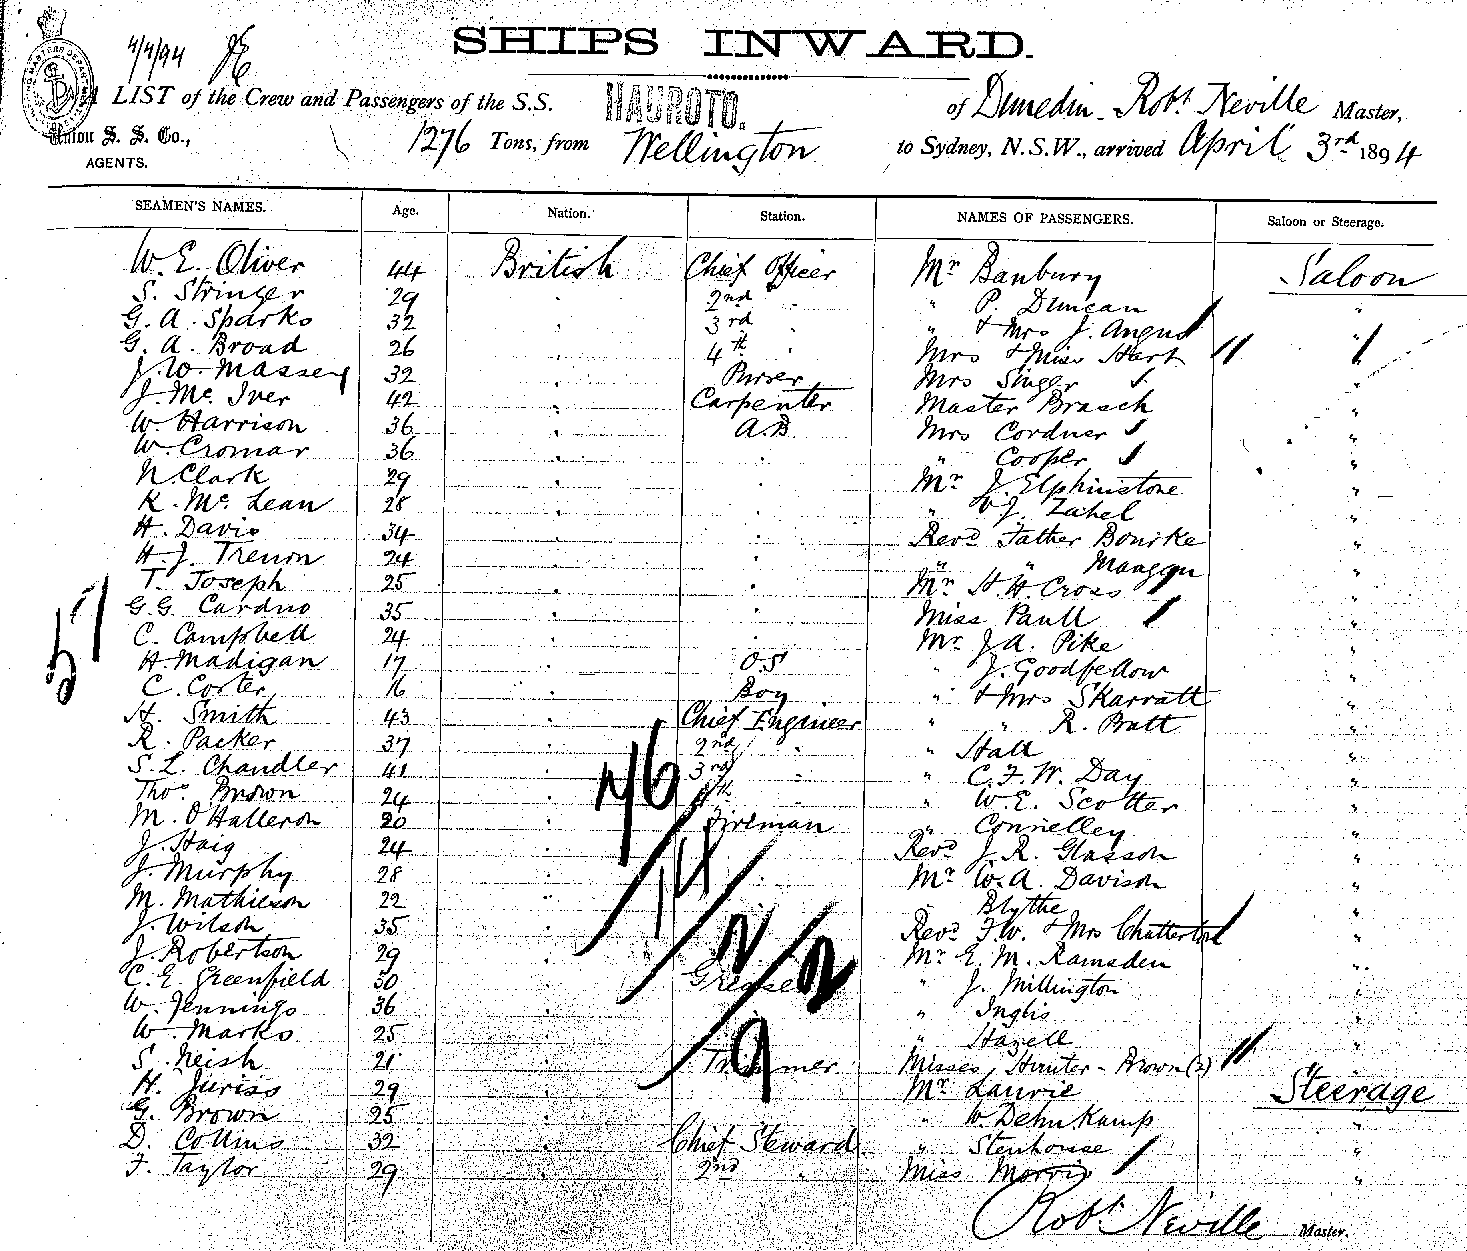 4/4/94
SHIPS INWARD.
A LIST of the Crew and Passengers of the S.S. HAUROTO. of Dunedin. Robt Neville Master,
Union S. S. Co., AGENTS. 1276 Tons, from Wellington to Sydney, N.S.W., arrived April 3rd 1894
SEAMEN'S NAMES. Age. Nation. Station. NAMES OF PASSENGERS. Saloon or Steerage.
W. E. Oliver 44 British Chief Officer Mr Banbury Saloon
S. Stringer 29 " 2nd " " P. Duncan "
G. A. Sparks 32 " 3rd " " & Mrs J. Angus "
G. A. Broad 26 " 4th " Mrs & Miss Hart "
J. W. Massey 32 " Purser Mrs Singer "
J. Mc. Iver 42 " Carpenter Master Brasch "
W. Harrison 36 " A.B. Mrs Cordner "
W. Cromar 36 " " " Cooper "
N Clark 29 " " Mr J. Elphinstone "
K. Mc. Lean 28 " " " V J. Zahel "
H. Davis 34 " " Revd Father Bourke "
H. J. Trenon 24 " " " " Mangan "
T. Joseph 25 " " Mr H. H. Cross "
G. G. Cardno 35 " " Miss Paull "
C. Campbell 24 " " Mr. J A. Pike "
H. Madigan 17 " O.S " J. Goodfellow "
C. Corter 16 " Boy " & Mrs Skarratt "
H. Smith 43 " Chief Engineer " " R. Pratt "
R. Packer 37 " 2nd " " Hall "
S. L. Chandler 41 " 3rd " " C. F. W. Day "
Thos Brown 24 " 4th " " W. E. Scotter "
M. O'Halleron 20 " Fireman " Connelley "
J. Haig 24 " " Revd J. R. Glasson "
J. Murphy 28 " " Mr W. A. Davison "
M. Mathieson 22 " " " Blythe "
J. Wilson 35 " " Revd F. W. & Mrs Chatterton "
J. Robertson 29 " " Mr E. M. Ramsden "
C. E. Greenfield 30 " Greaser " J. Millington "
W. Jennings 36 " " " Inglis "
W. Marks 25 " " " Hazell "
S. Neish 21 " Trimmer Misses Hunter-Brown (2) "
H. Juriss 29 " " Mr. Laurie Steerage
G. Brown 25 " " " W. Dehnkamp "
D. Collins 32 " Chief Steward " Stenhouse "
F. Taylor 29 " 2nd " Miss Morris "
57
46
14
2
2
9
Robt. Neville Master.